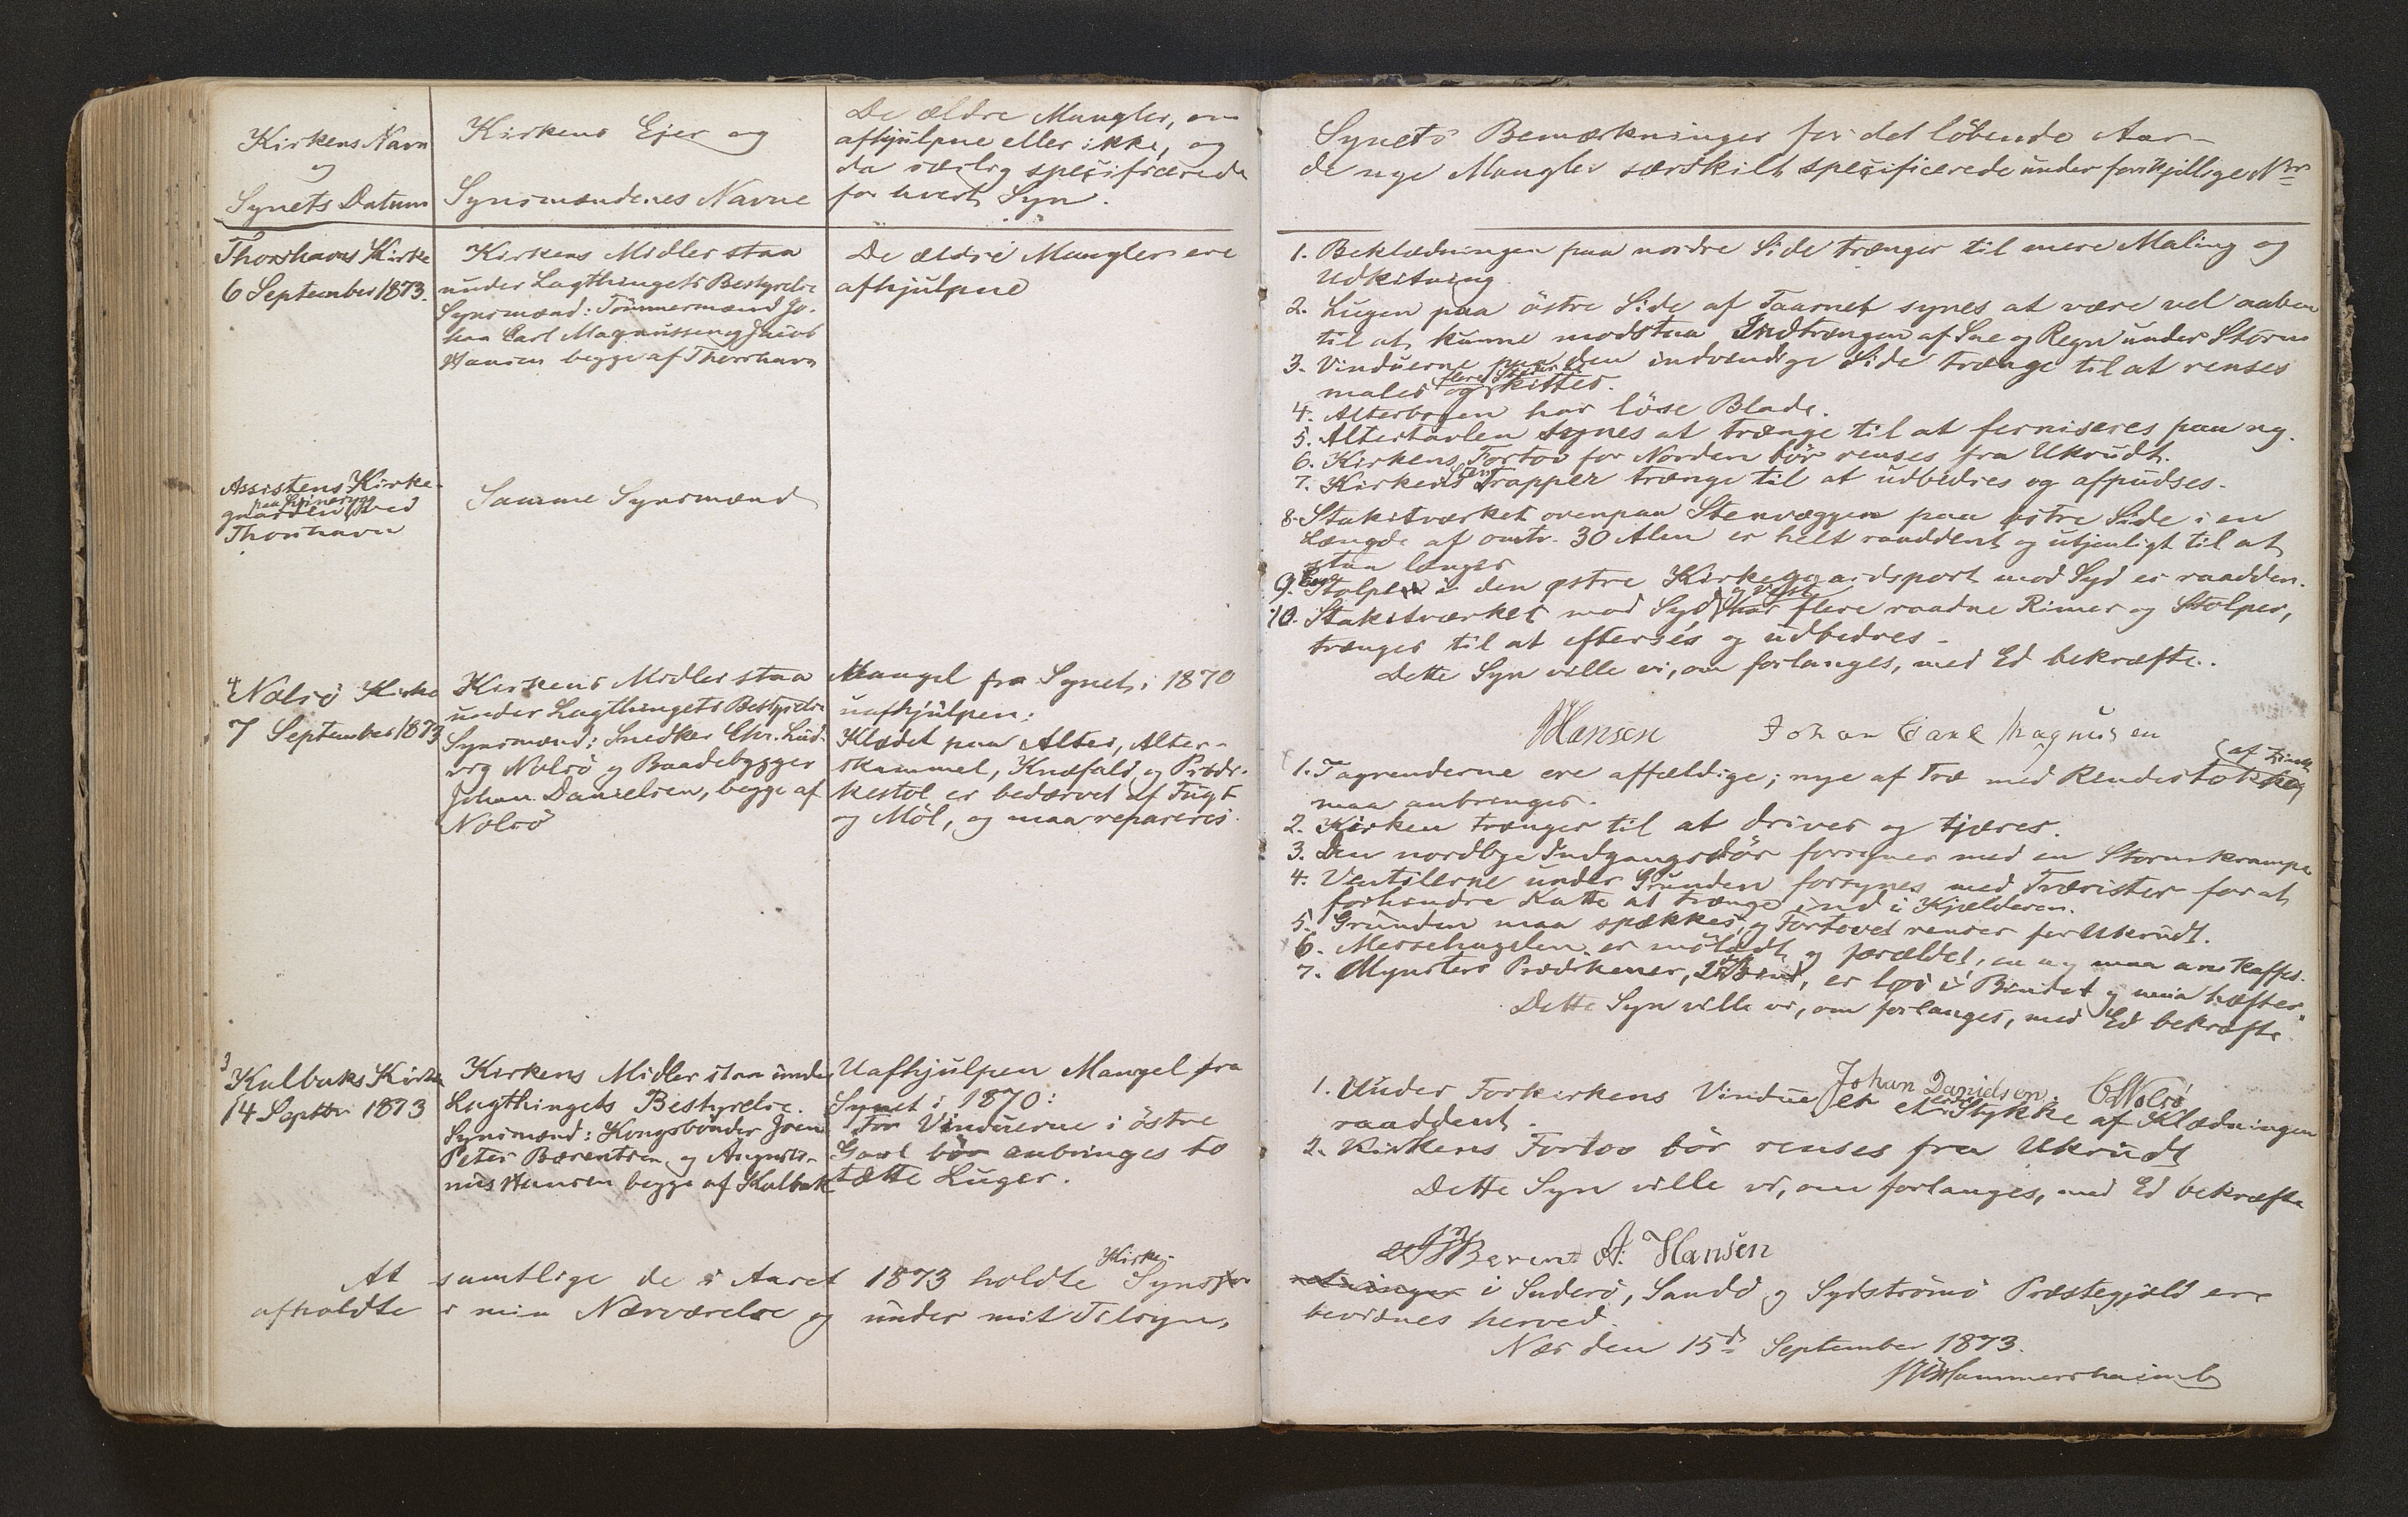 Kirkens Navn
og
Synets Datum
Kirkens Ejer og
Synsmændenes Navne
De ældre Mangler, om
afhjulpne eller ikke, og
da særlig specificerede
for hvert Syn.
Thorshavns Kirke
6 September 1873.
Kirkens Midler staa
under Lagthingets Bestyrelse
Synsmænd: Tömmermænd Jo-
han Carl Magnussen og Jacob
Hansen begge af Thorshavn
De ældre Mangler ere
afhjulpne
Assistens Kirke-
gaarden paa ved
Thorshavn
Samme Synsmænd
Nolsö Kirke
7 September 1873
Kirkens Midler staa
under Lagthingets Bestyrelse
Synsmænd: Snedker Chr. Lud-
vig Nolsö og Baadebygger
Johan Danielsen, begge af
Nolsö
Mangel fra Synet i 1870
uafhjulpen:
Klædet paa Alter, Alter-
skammel, Knæfald og Prædi-
kestol er bedærvet af Fugt
og Möl, og maa repareres.
Kalbaks Kirke
14 Septbr 1873
Kirkens Midler staa under
Lagthingets Bestyrelse.
Synsmænd: Kongsbönder Joen
Peter Bærentsen og Augusti-
nus Hansen begge af Kalbak
Uafhjulpen Mangel fra
Synet i 1870:
For Vinduerne i östre
Gavl bör anbringes to
tætte Luger.
At samtlige de i Aaret 1873 holdte Kirke-Syns
afholdte i min Nærværelse og under mit Tilsyn,
Synets Bemærkninger for det löbende Aar –
de nye Mangler særskilt specificerede under forskjellige Nrs
1. Beklædningen paa nordre Side trænger til mere Maling og
Udkitning.
2. Lugen paa östre Side af Taarnet synes at være vel aaben
til at kunne modstaa Indtrængen af Sne og Regn under Storm
3. Vinduerne paa den indvendige Side trænge til at renses
males og flere Steder kittes.
4. Alterbogen har löse Blade.
5. Altertavlen synes at trænge til at ferniseres paa ny.
6. Kirkens Fortov for Norden bör renses fra Ukrudt.
7. Kirkens Sten Trapper trænge til at udbedres og afpudses.
8. Stakitværket ovenpaa Stenvæggen paa østre Side i en
Længde af omtr. 30 Alen er helt raaddent og utjenligt til at
staa længer
9. Een Stolpe i den østre Kirkegaardsport mod Syd er raadden.
10. Stakitværket mod Syd og Vest har flere raadne Rimer og Stolper,
trænger til at efterses og udbedres –
Dette Syn ville vi, om forlanges, med Ed bekræfte.
JHansen Johan Carl Magnusen
1. Tagrenderne ere affældige; nye af Træ med Rendestokke af Zink
maa anbringes.
2. Kirken trænger til at drives og tjæres.
3. Den nordlige Indgangsdör forsynes med en Stormkrampe
4. Ventilerne under Grunden forsynes med Trærister for at
forhindre Katte at trænge ind i Kjælderen.
5. Grunden maa spækkes, og Fortovet renses for Ukrudt.
6. Messehagelen er mölædt og forældet, en ny maa anskaffes.
7. Mynsters Prædikener, 2det Bind, er løs i Bindet og maa hæftes.
Dette Syn ville vi, om forlanges, med Ed bekræfte
Johan Danielsen. CNolsö
1. Under Forkirkens Vindue er et Stykke af Klædningen
raaddent.
2. Kirkens Fortov bör renses fra Ukrudt
Dette Syn ville vi, om forlanges, med Ed bekræfte
Berent A. Hansen
i Suderö, Sandö og Sydströmö Præstegjæld ere
bevidnes herved.
Næs den 15d September 1873.
Hammershaimb